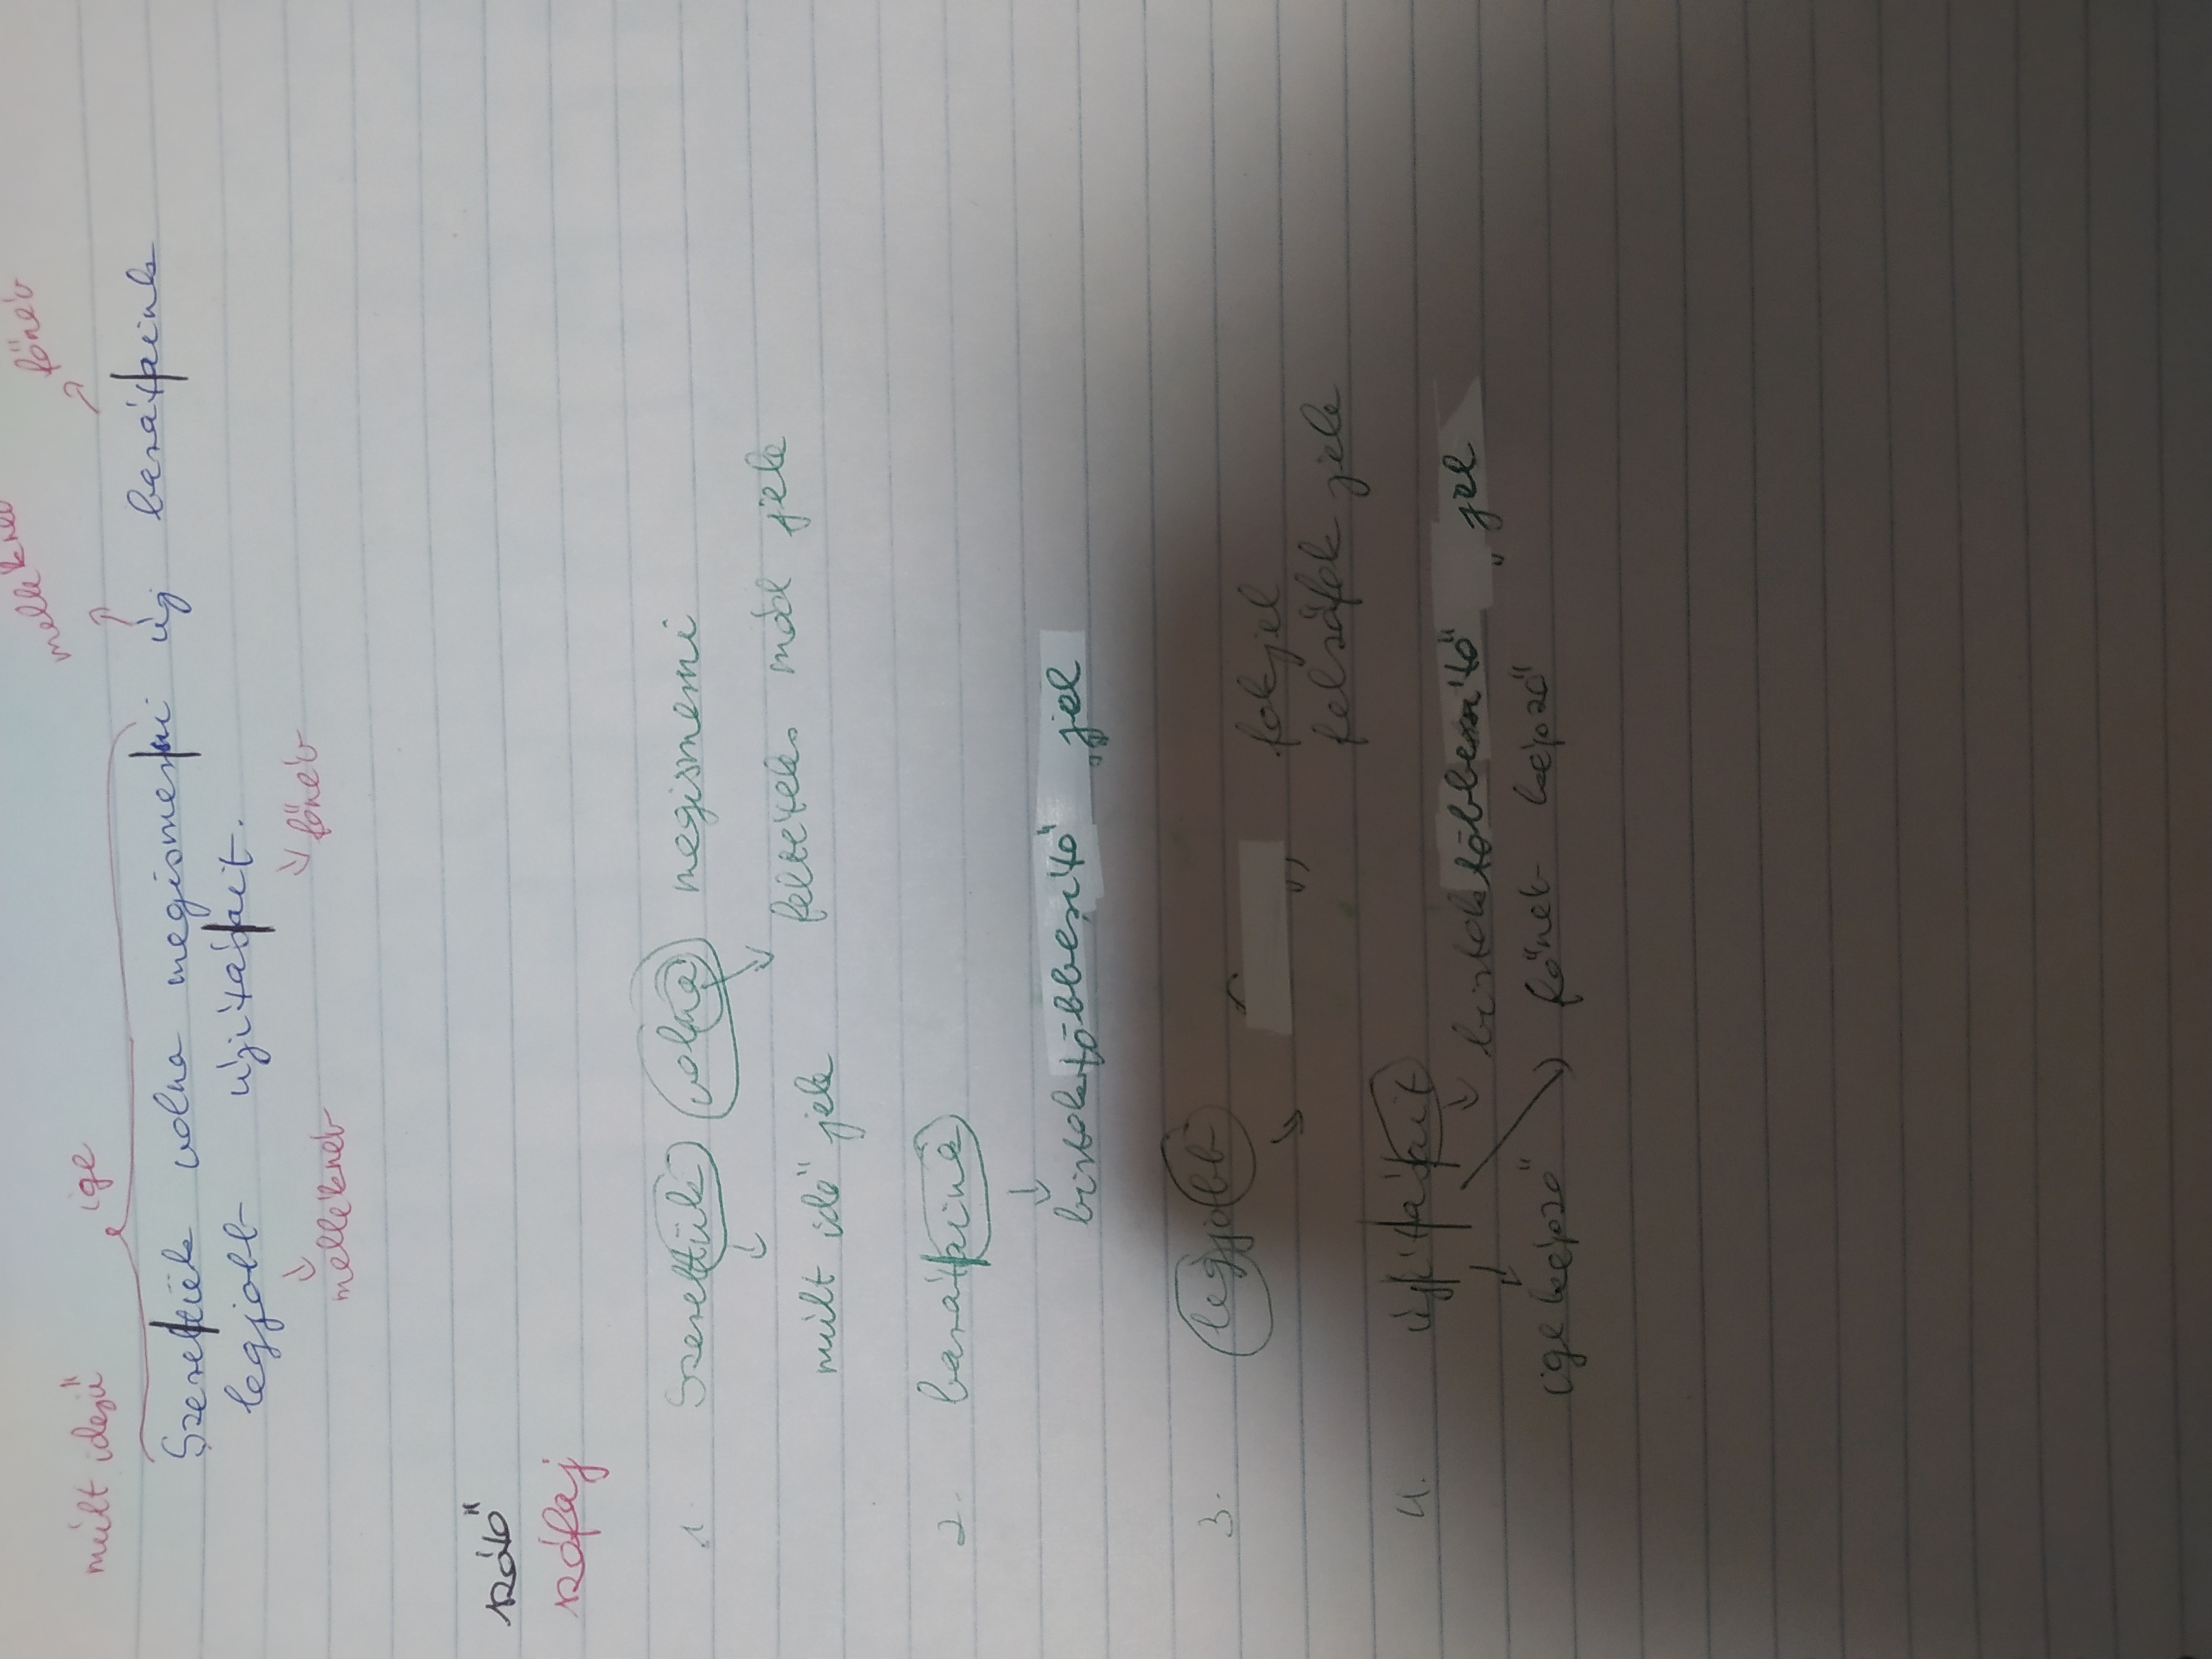 múlt idejű ige melléknév főnév
Szerettük volna megismerni új barátaink
legjobb újításait.
melléknév főnév
szótő
szófaj
1. Szerettük volna megismerni
múlt idő jele feltételes mód jele
2. barátaink
birtoktöbbesítő jel
3. legjobb fokjel
felsőfok jele
4. újításait birtoktöbbesítő jel
igeképző főnév képző